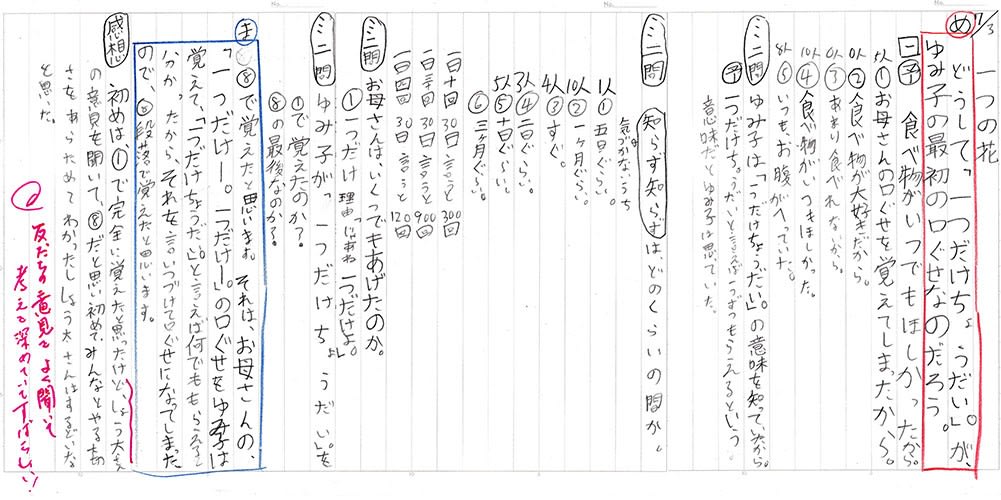 7/3
一つの花
め どうして、「一つだけちょうだい。」が、
ゆみ子の最初の口ぐせなのだろう。
予 食べ物がいつでもほしかったから。
5人 ① お母さんの口ぐせを覚えてしまったから。
0人 ② 食べ物が大好きだから。
0人 ③ あまり食べれないから。
10人 ④ 食べ物がいつもほしかった。
8人 ⑤ いつも、お腹がへっていた。
ミニ問 ゆみ子は「一つだけちょうだい。」の意味を知っていたか。
予 一つだけちょうだいと言えば一つずつもらえるという
意味だとゆみ子は思っていた。
ミニ問 知らず知らずは、どのくらいの間か。
気づかないうち
1人 ① 五日ぐらい。
10人 ② 一ヶ月ぐらい。
4人 ③ すぐ。
3人 ④ 二日ぐらい。
5人 ⑤ 十日ぐらい。
⑥ 三ヶ月ぐらい。
一日十回 30日 言うと 300回
一日三十回 30日 言うと 900回
一日四回 30日 言うと 120回
ミニ問 お母さんは、いくつでもあげたのか。
① 一つだけ 理由「じゃあね、一つだけよ。」
ミニ問 ゆみ子が「一つだけちょうだい。」を
①で覚えたのか?
⑧の最後なのか?
ま ⑧で覚えたと思います。それは、お母さんの、
「一つだけー。一つだけー。」の口ぐせをゆみ子は
覚えて、「一つだけちょうだい。」と言えば何でももらえると
分かったから、それを、言いつづけて口ぐせになってしまった
ので、⑧段落で覚えたと思います。
感想 初めは、①で完全に覚えたと思ったけど、しょう太さん
の意見を聞いて、⑧だと思い初めて、みんなとやるよさ
さをあらためてわかったし、しょう太さんはするどいな
と思いた。
友だちの意見をよく聞いて
考えを深めていてすばらしい!